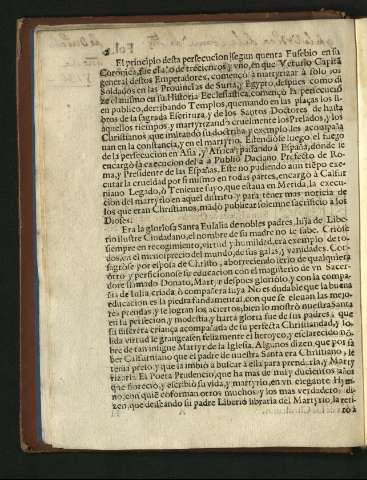 El principio desta persecucion (segun quenta Eusebio en su
Coronica, fue el año de trecientos y vno, en que Veturio Capitã
general destos Emperadores, començò a martyrizar à solo los
Soldados en las Prouincias de Suria, y Egypto, despues como di
ze el mismo en su Historia Ecclesiastica, començò la persecuciõ
en publico, derribando Templos, quemando en las plaças los li-
bros de la sagrada Escritura, y de los Santos Doctores de hasta
aquellos tiempos, y martyrizando cruelmente los Prelados, y los
Christianos, que imitando su doctrina, y exemplo, les acompaña
uan en la constancia, y en el martyrio. Estendiòse luego el fuego
de la persecucion en Asia, y Africa, passando à España, dõnde se
encargò la execucion della à Publio Daciano Prefecto de Ro-
ma, y Presidente de las Españas. Este no pudiendo aun tiẽpo exe-
cutar la crueldad por si mismo en todas partes, encargò à Calfur
niano Legado, ò Teniente suyo, que estaua en Merida, la execu-
cion del martyrio en aquel distrito, y para tener mas noticia de
los que eran Christianos, mãdò publicar solemne sacrificio à los
Dioses.
Era la gloriosa Santa Eulalia de nobles padres, hija de Libe-
rio ilustre Ciudadano, el nombre de su madre no se sabe. Criòse
siempre en recogimiento, virtud y humildad, era exemplo de to-
dos, en el menosprecio del mundo, de sus galas, y vanidades. Con-
sagròse por esposa de Christo, aborreciendo serlo de qualquiera
otro, y perficionòse su educacion con el magisterio de vn Sacer-
dote llamado Donato, Martyr despues glorioso, y con la compa-
ñia de Iulia criada, ò compañera suya. No es dudable que la buena
educacion es la piedra fundamental, con que se eleuan las mejo-
res prendas, y se logran los aciertos, bien lo mostrò nuestra Santa
en la perfecion, y modestia, y harta gloria fue de sus padres, que
su ilustre criança acompañada de su perfecta Christiandad, y so-
lida virtud le grangeasen felizmente el heroyco, y esclarecido nõ
bre de tan insigne Martyr de la Iglesia. Algunos dizen, que por sa
ber Calfurniano que el padre de nuestra Santa era Christiano, le
tenia preso, y que la imbiò à buscar à ella para prenderla, y Marty
rizarla. El Poeta Prudencio, que ha mas de mil y ducientos años
que floreciò, y escribiò su vida, y martyrio, en vn elegante Hym-
no, con quiẽ conforman otros muchos, y los mas verdaderos, di-
zen, que deseando su padre Liberio libraria del Martyrio, la reti
rò à